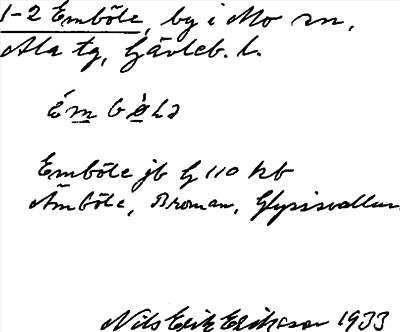 1-2 Emböle, by i Mo sn,
Ala tg, Gävleb. l.
Émbö̀lə
Emböle jb G 110 kb
Ämböle, Broman, Glysisvallur
Nils Erik Eriksson 1933